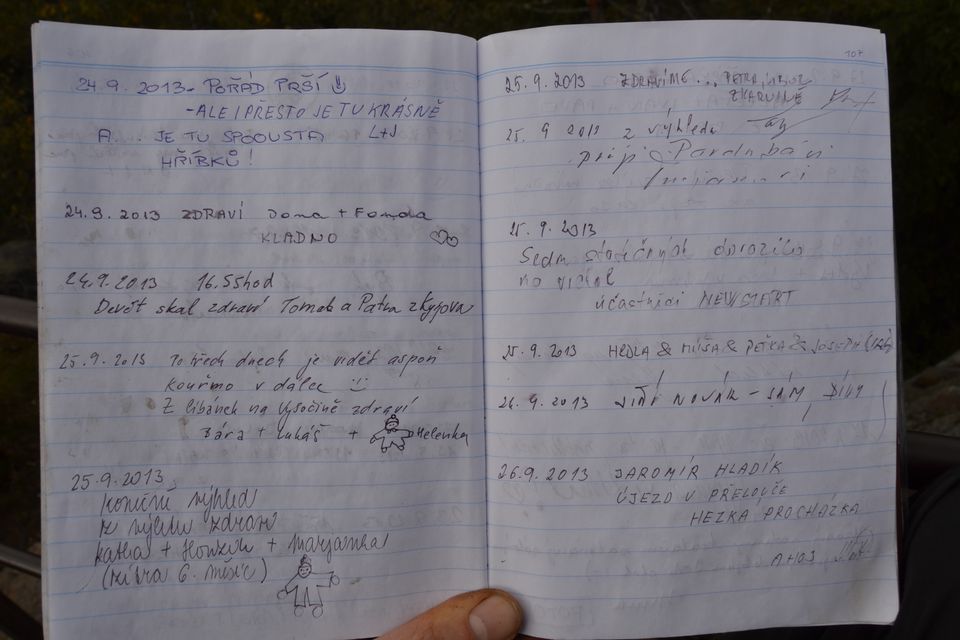 24.9.2013 - POŘÁD PRŠÍ
- ALE I PŘESTO JE TU KRÁSNĚ
A... JE TU SPOUSTA L+J
HŘÍBKŮ!
24.9.2013 ZDRAVÍ Doma + Fomda
KLADNO
24.9.2013 16.55hod
Devět skal zdraví Tomáš a Petra z Kyjova
25.9.2013 Po třech dnech je vidět aspoň
kouřmo v dálce
Z líbánek na Vysočině zdraví
Bára + Lukáš + Helenka
25.9.2013
konečně výhled
z výletu zdraví
Katka + Honzík + Marjanka
(6. měsíc)
107
25.9.2013 ZDRAVÍME... PETRA
Z KARVINÉ
25. 9 2013 z výhledu
25.9.2013
Sedm statečných dorazilo
na
účastníci NEWSTART
25.9.2013 HEDLA & MÍŠA & PEŤKA & JOSEPH
26.9.2013 JIŘÍ NOVÁK - SÁM,
26.9.2013 JAROMÍR HLADÍK
ÚJEZD U PŘELOUČE
HEZKÁ PROCHÁZKA
AHOJ